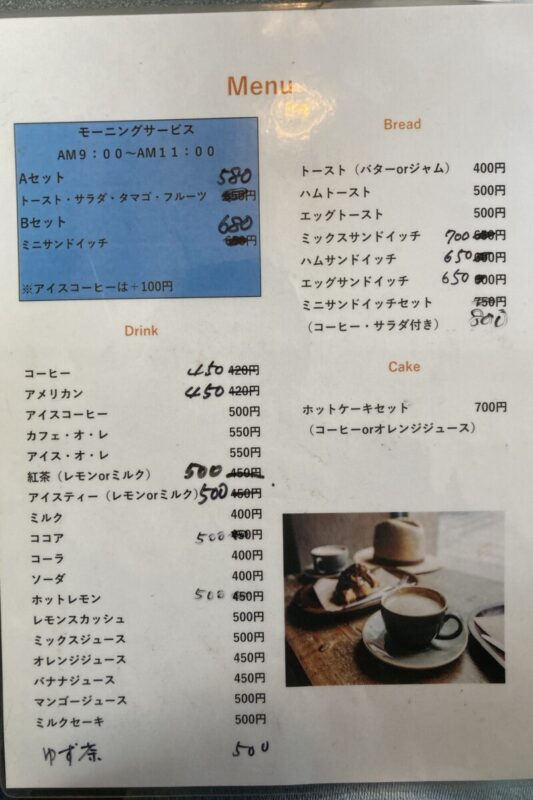 Menu
モーニングサービス
AM9:00～AM11:00
Aセット 580
トースト・サラダ・タマゴ・フルーツ 円
Bセット 680
ミニサンドイッチ 円
※アイスコーヒーは＋100円
Drink
コーヒー 450 420円
アメリカン 450 420円
アイスコーヒー 500円
カフェ・オ・レ 550円
アイス・オ・レ 550円
紅茶（レモンorミルク） 500 450円
アイスティー（レモンorミルク） 500 450円
ミルク 400円
ココア 500 450円
コーラ 400円
ソーダ 400円
ホットレモン 500 450円
レモンスカッシュ 500円
ミックスジュース 500円
オレンジジュース 450円
バナナジュース 450円
マンゴージュース 500円
ミルクセーキ 500円
ゆず茶 500
Bread
トースト（バターorジャム） 400円
ハムトースト 500円
エッグトースト 500円
ミックスサンドイッチ 700 円
ハムサンドイッチ 650 円
エッグサンドイッチ 650 円
ミニサンドイッチセット 750円
（コーヒー・サラダ付き） 800
Cake
ホットケーキセット 700円
（コーヒーorオレンジジュース）